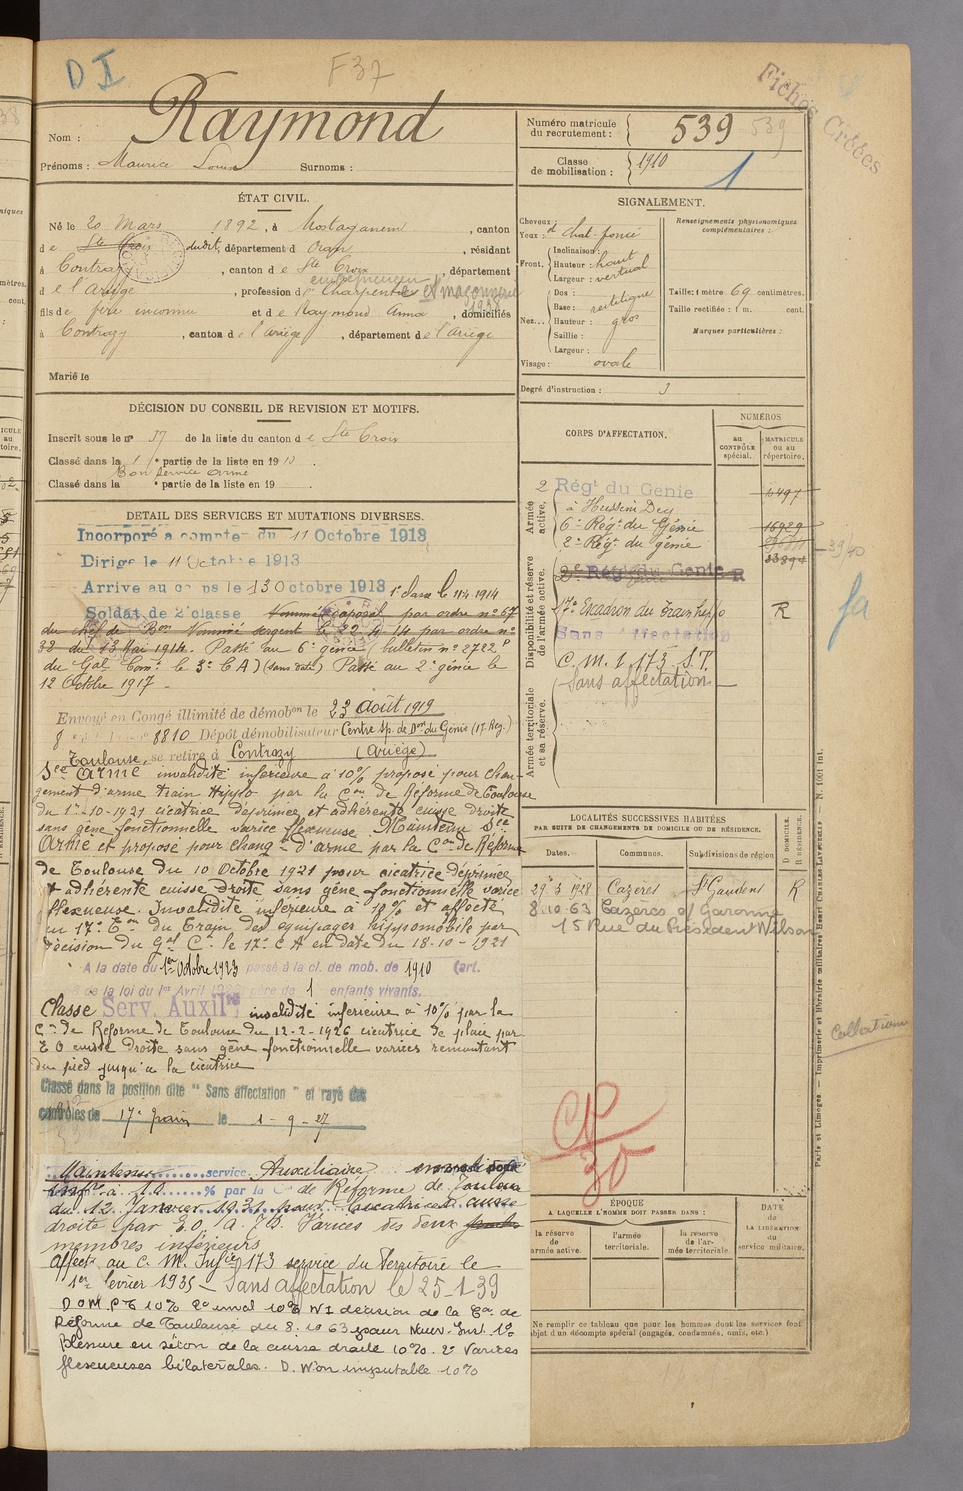 D I
F37
Fiches Créées
Nom : Raymond
Prénoms : Maurice Louis Surnoms :
Numéro matricule du recrutement : 539
539
Classe de mobilisation : 1910
1
ÉTAT CIVIL.
Né le 20 Mars 1892, à Mostaganem, canton
d e Ste Croix dudit, département d Oran, résidant
à Contrazy, canton d e Ste Croix, département
d e l'Ariège, profession d entrepreneur charpentes et maçonnerie
1938
fils de père inconnu et d e Raymond Anna, domiciliés
à Contrazy, canton d e l'ariège, département d e l'ariège
Marié le
SIGNALEMENT.
Cheveux :
Yeux : d chat. foncé
Front. Inclinaison :
Hauteur : haut
Largeur : vertical
Nez... Dos :
Base : rectiligne
Hauteur : gros
Saillie :
Largeur :
Visage : ovale
Renseignements physionomiques complémentaires :
Taille : 1 mètre 69 centimètres.
Taille rectifiée : 1 m. cent.
Marques particulières :
Degré d'instruction : 3
DÉCISION DU CONSEIL DE REVISION ET MOTIFS.
Inscrit sous le no 37 de la liste du canton d e Ste Croix
Classé dans la 1 e partie de la liste en 19 13.
Bon service armé
Classé dans la e partie de la liste en 19
DETAIL DES SERVICES ET MUTATIONS DIVERSES.
Incorporé a compter du 11 Octobre 1913
Dirigé le 11 Octobre 1913
Arrivé au corps le 13 Octobre 1913 1e classe le 11.4.1914
Soldat de 2e classe Nommé caporal par ordre no 57
du chef de Bon Nommé sergent le 22-4-14 par ordre no
32 du 13 Mai 1914. Passé au 6e génie (bulletin no 2722 P
du Gal Comt le 3e C A) (sans date) Passé au 2e génie le
12 Octobre 1917 -
Envoyé en Congé illimité de démobon le 23 août 1919
8 8810 Dépôt démobilisateur Centre sp. de Don du Génie (17. Rég.)
Toulouse, se retire à Contrazy (Ariège)
Sce Armé invalidité inférieure à 10% proposé pour chan-
gement d'arme train Hippo par la Con de Réforme de Toulouse
du 1er-10-1921 cicatrice déprimée et adhérente cuisse droite
sans gêne fonctionnelle varice flexueuse. Maintenu Sce
Armé et proposé pour changt d'arme par la Con de Réforme
de Toulouse du 10 Octobre 1921 pour cicatrice déprimée
et adhérente cuisse droite sans gêne fonctionnelle varice
flexueuse. Invalidité inférieure à 10% et affecté
au 17e Eon du Train des équipages hippomobile par
décision du Gal Ct le 17e C A en date du 18-10-1921
A la date du 1er Octobre 1923 passé à la cl. de mob. de 1910 (art.
de la loi du 1er Avril père de 1 enfants vivants.
Classé Serv. Auxilre invalidité inférieure à 10% par la
Con de Réforme de Toulouse du 12-2-1926 cicatrice de plaie par
E O cuisse droite sans gêne fonctionnelle varices remontant
du pied jusqu'à la cicatrice
Classé dans la position dite " Sans affectation " et rayé des
contrôles de 17e Train le 1-9-27
Maintenu service Auxiliaire invalidité
infre à 10 % par la Con de Réforme de Toulouse
du 12 Janvier 1931 pour cicatrices cuisse
droite par E.O. Varices des deux
membres inférieurs
Affecté au C. M. Infie 173 service du Territoire le
1er février 1935 - Sans affectation le 25-1-39
D O M. P T 10% 2o inval 10% N I décision de la Con de
Réforme de Toulouse du 8.10 63 pour 1o
Blessure en séton de la cuisse droite 10%. 2o Varices
flexueuses bilatérales. D. Non imputable 10%
CORPS D'AFFECTATION.
NUMEROS
au CONTRÔLE spécial.
MATRICULE ou au répertoire.
Armée active.
2 Régt du Génie 6497
à Hussein Dey
6e Régt du Génie 16929
2e Régt du génie
3940
33894
Disponibilité et réserve de l'armée active.
2e Régt du Genie R
17e Escadron du Train hippo R
Sans Affectation
C. M. I 173 S.T.
Sans affectation
Armée territoriale et sa réserve.
LOCALITÉS SUCCESSIVES HABITÉES
PAR SUITE DE CHANGEMENTS DE DOMICILE OU DE RÉSIDENCE.
D. DOMICILE. R. RÉSIDENCE.
Dates. Communes. Subdivisions de région
29 5 1928 Cazères St Gaudens R
8.10-63 Cazères s/ Garonne
15 Rue du Président Wilson
Collationné
CP
30
ÉPOQUE
A LAQUELLE L'HOMME DOIT PASSER DANS :
la réserve de l'armée active.
l'armée territoriale.
la réserve de l'armée territoriale
DATE de LA LIBÉRATION du service militaire.
Ne remplir ce tableau que pour les hommes dont les services font
objet d'un décompte spécial (engagés, condamnés, omis, etc.)
Paris et Limoges. — Imprimerie et librairie militaires Henri CHARLES-LAVAUZELLE — N. 1001 Int.